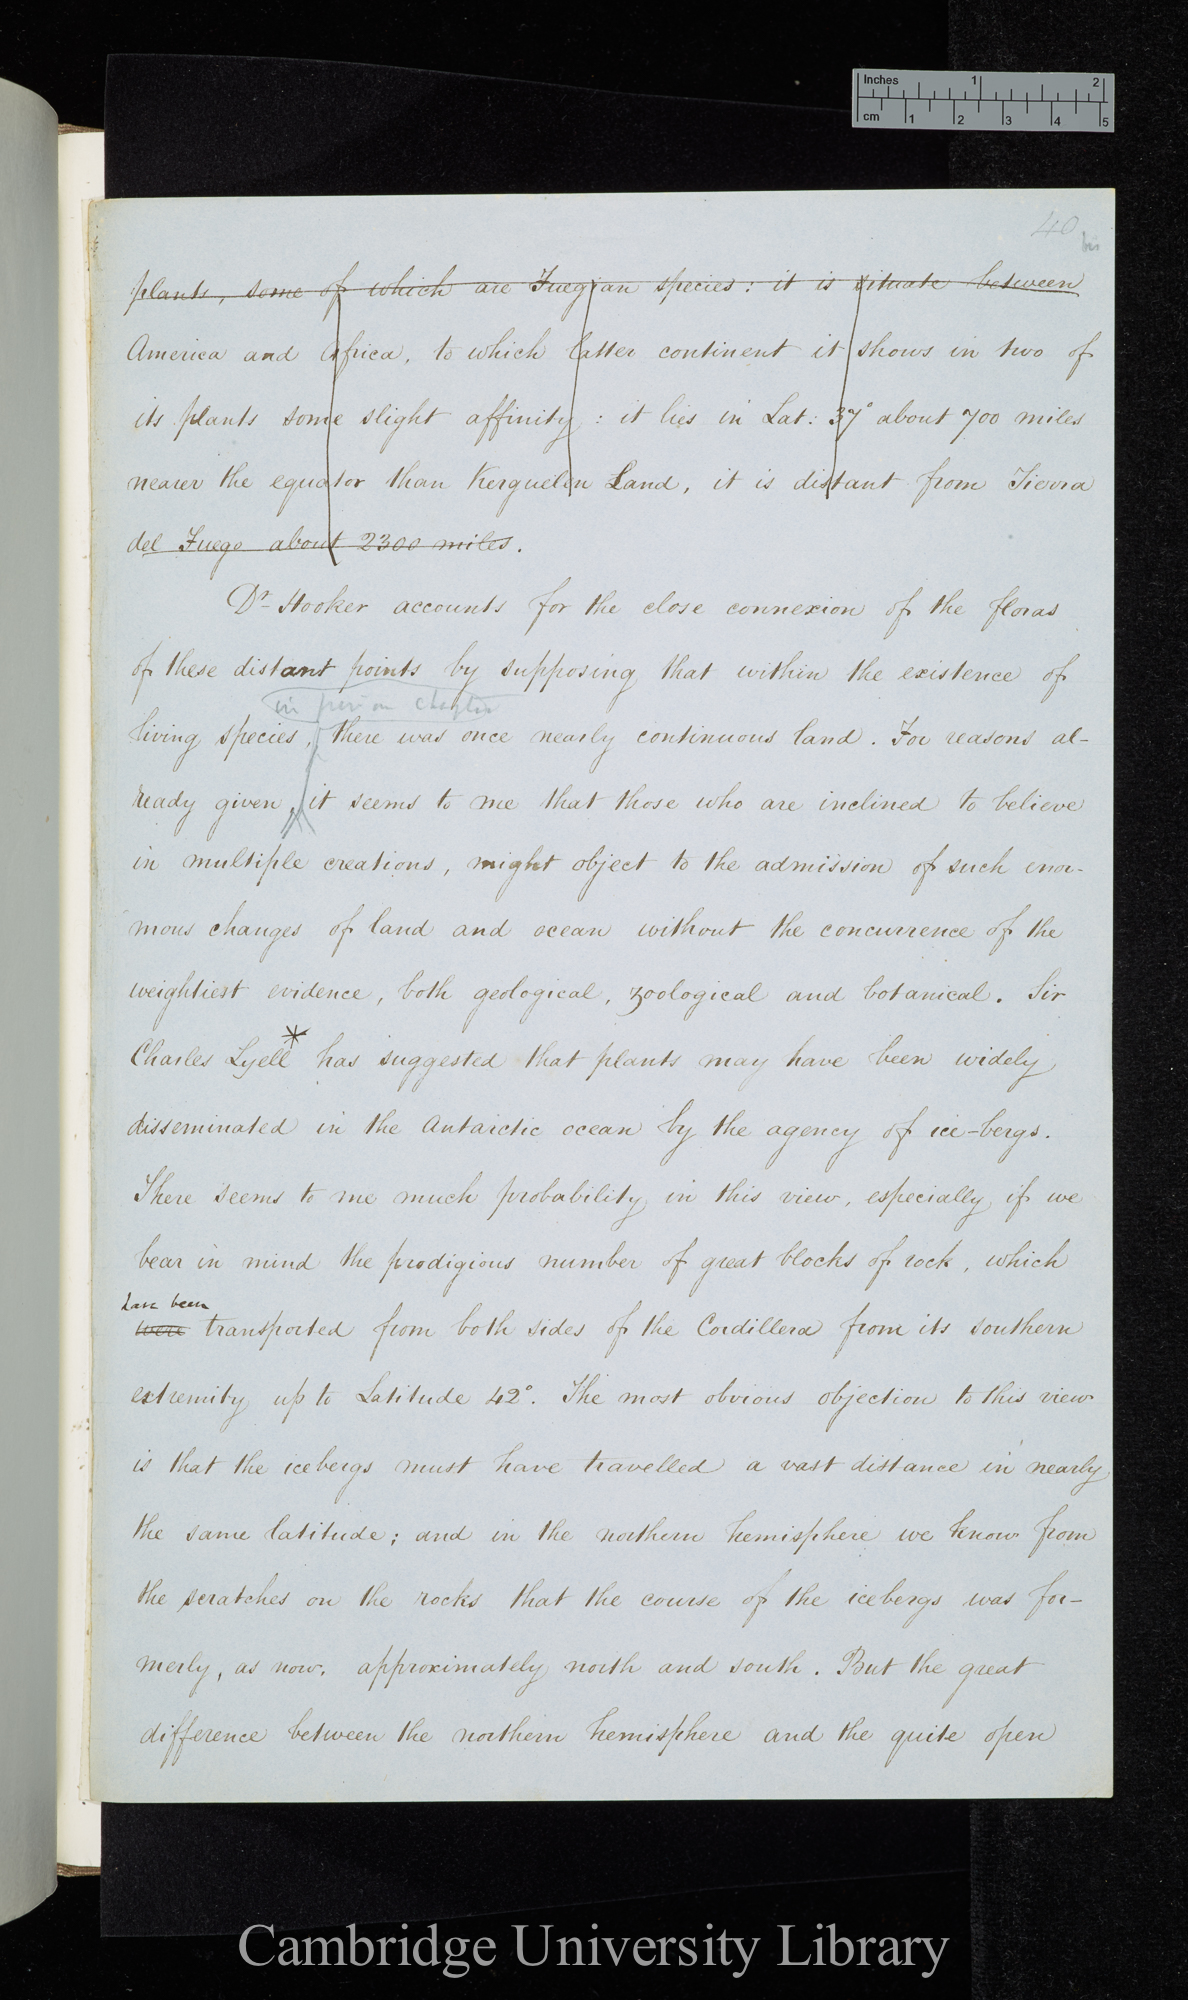 Inches 1 2
cm 1 2 3 4 5
40
bis
plants, some of which are Fuegian species: it is situate between
America and Africa, to which latter continent it shows in two of
its plants some slight affinity: it lies in Lat: 37° about 700 miles
nearer the equator than Kerguelen Land, it is distant from Tierra
del Fuego about 2300 miles.
Dr. Hooker accounts for the close connexion of the floras
of these distant points by supposing that within the existence of
in chapter
living species, there was once nearly continuous land. For reasons al-
ready given, it seems to me that those who are inclined to believe
in multiple creations, might object to the admission of such enor-
mous changes of land and ocean without the concurrence of the
weightiest evidence, both geological, zoological and botanical. Sir
Charles Lyell* has suggested that plants may have been widely
disseminated in the Antarctic ocean by the agency of ice-bergs.
There seems to me much probability in this view, especially if we
bear in mind the prodigious number of great blocks of rock, which
have been
were transported from both sides of the Cordillera from its southern
extremity up to Latitude 42°. The most obvious objection to this view
is that the icebergs must have travelled a vast distance in nearly
the same latitude; and in the northern hemisphere we know from
the scratches on the rocks that the course of the icebergs was for-
merly, as now, approximately north and south. But the great
difference between the northern hemisphere and the quite open
Cambridge University Library